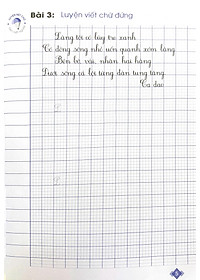 Bài 3: Luyện viết chữ đứng
Làng tôi có lũy tre xanh
Có dòng sông nhỏ uốn quanh xóm làng
Bên bờ vải, nhãn hai hàng
Dưới sông cá lội từng đàn tung tăng.
Ca dao
L
L